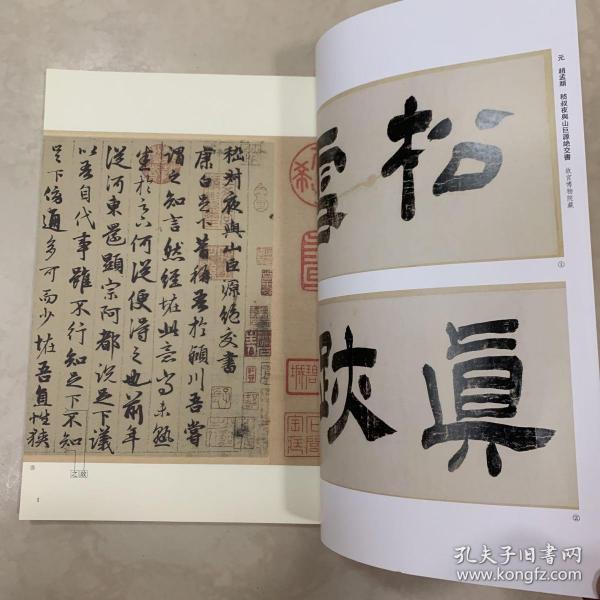 元 趙孟頫 嵇叔夜與山巨源絕交書 故宮博物院藏
松雪
①
眞跡
②
嵇叔夜與山巨源絕交書
康白足下昔稱吾於潁川吾嘗
謂之知言然經怪此意尚未熟
悉於足下何從便得之也前年
從河東還顯宗阿都說足下議
以吾自代事雖不行知足下不知
足下傍通多可而少怪吾直性狹
故之
③
1
孔夫子旧书网
www.kongfz.com